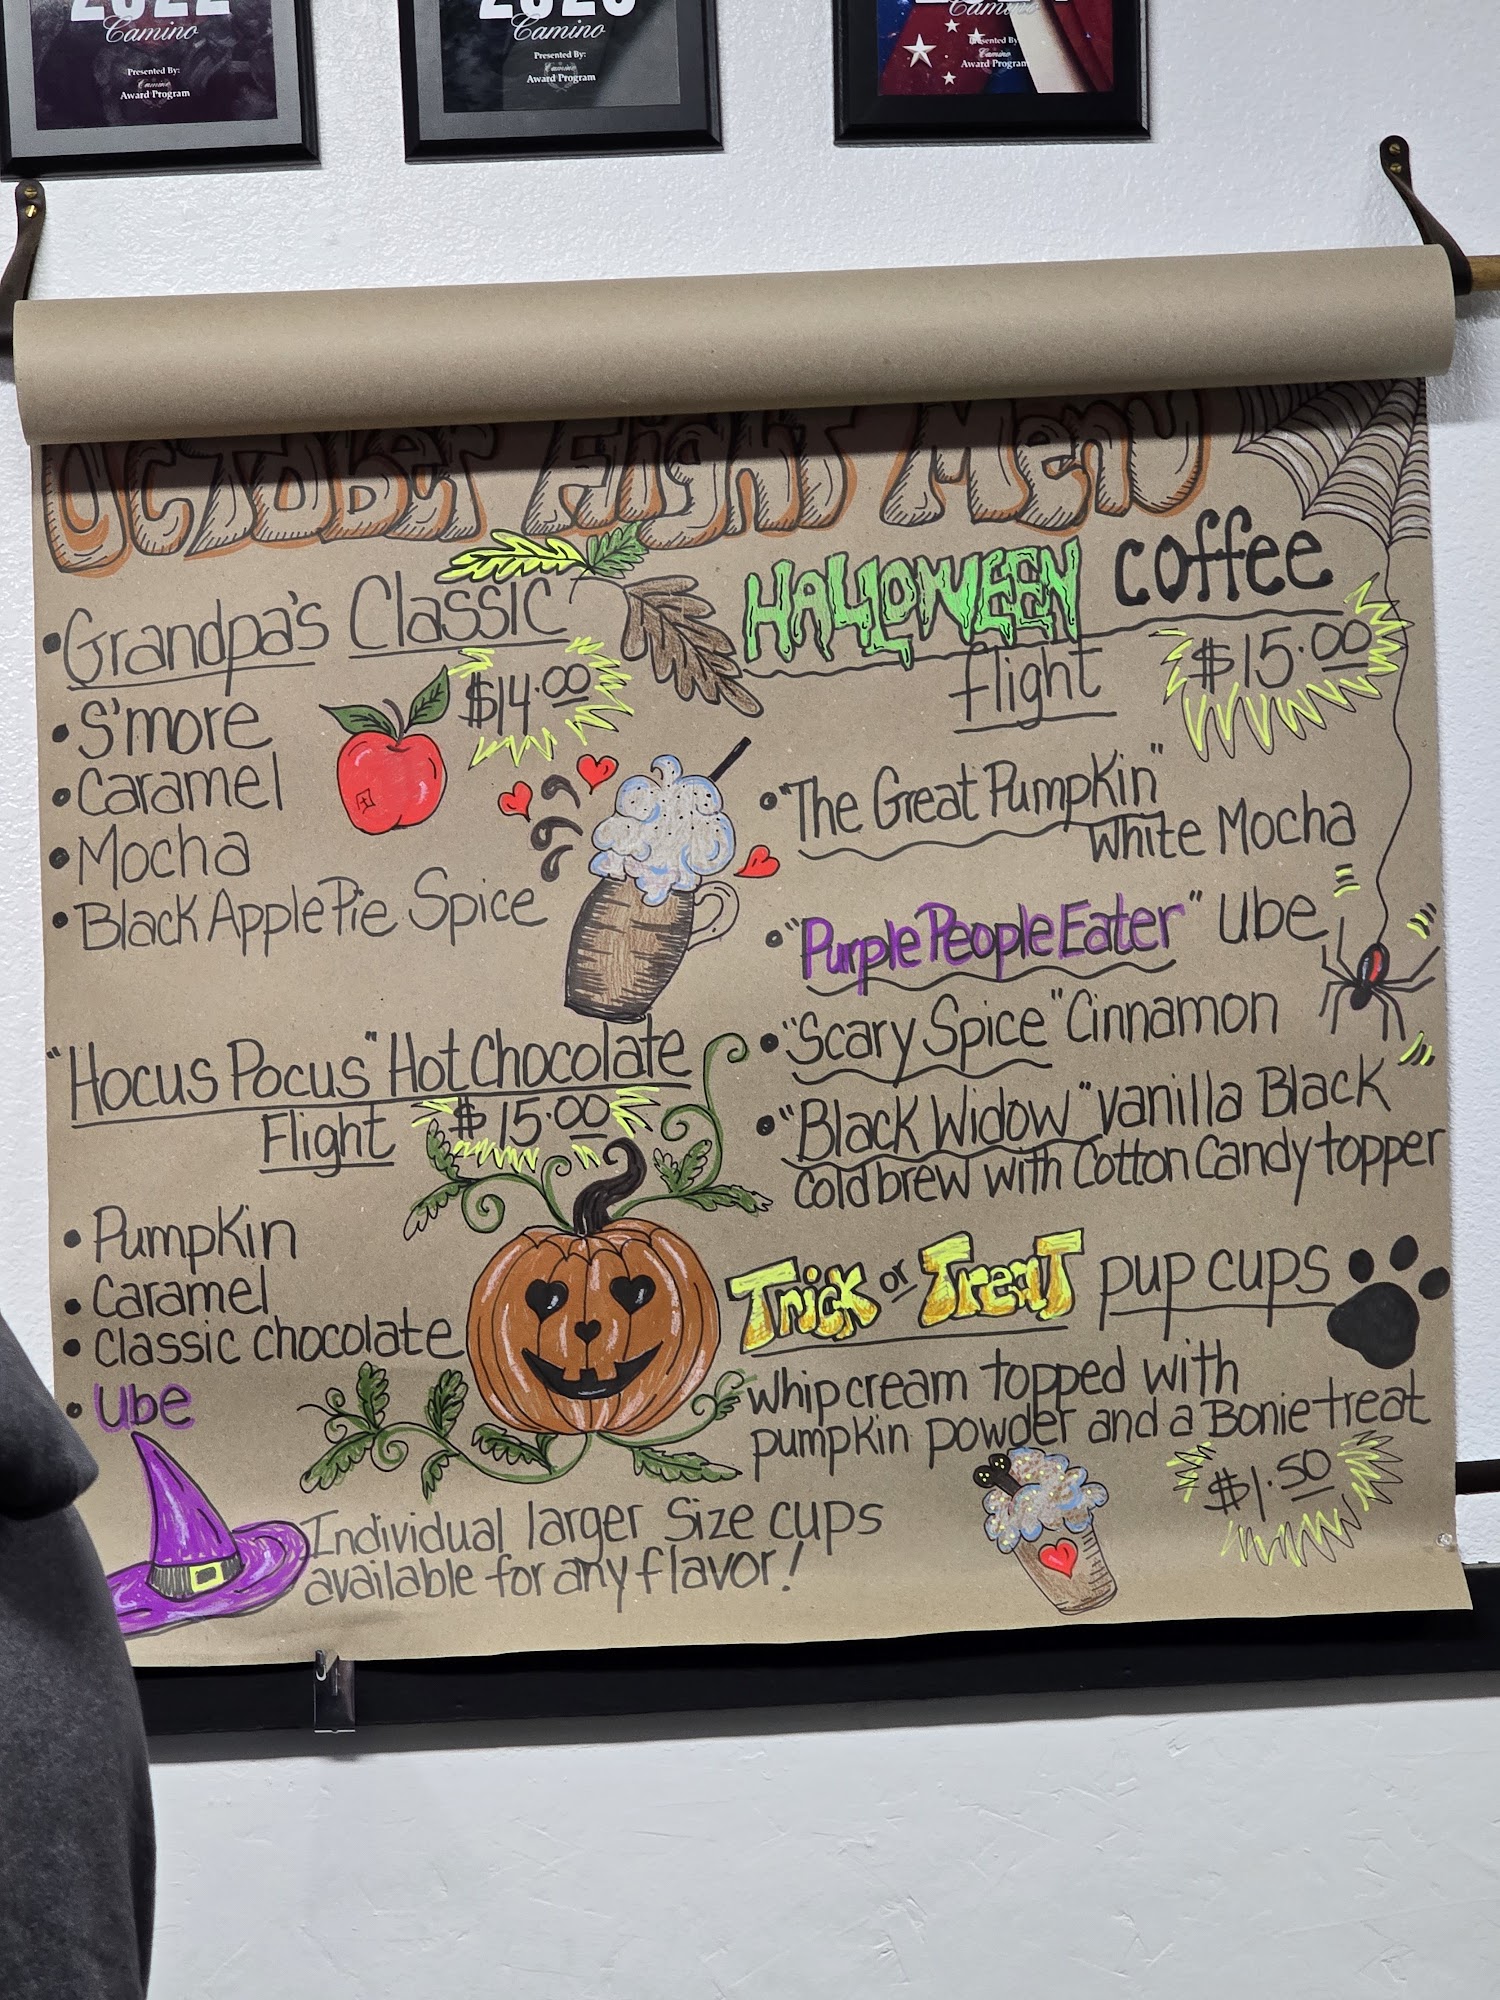 2022
Camino
Presented By:
Camino
Award Program
Camino
Presented By:
Camino
Award Program
Camino
Presented By:
Award Program
October Flight Menu
• Grandpa's Classic
$14.00
• S'more
• Caramel
• Mocha
• Black Apple Pie Spice
"Hocus Pocus" Hot Chocolate
Flight $15.00
• Pumpkin
• Caramel
• Classic chocolate
• Ube
Individual larger Size cups
available for any flavor!
HALLOWEEN coffee
flight $15.00
• "The Great Pumpkin"
White Mocha
• "Purple People Eater" Ube
• "Scary Spice" Cinnamon
• "Black Widow" vanilla Black
cold brew with Cotton Candy topper
Trick or Treat pup cups
whip cream topped with
pumpkin powder and a Bonie treat
$1.50